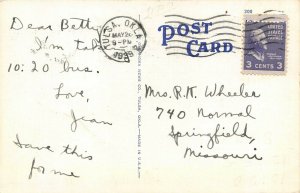 Dear Betty
I'm takin
10:20 bus.
Love,
Jean
Save this
for me
TULSA, OKLA.
MAY 24
8-PM
1939
POST
CARD
MADE IN U.S.A.
UNITED
STATES
POSTAGE
3 CENTS 3
Mrs. R.K. Wheeler
740 Normal
Springfield,
Missouri